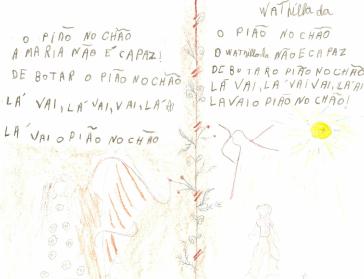 O PIÃO NO CHÃO
A MARIA NÃO É CAPAZ!
DE BOTAR O PIÃO NO CHÃO
LÁ VAI, LÁ VAI, VAI, LÁ VAI
LÁ VAI O PIÃO NO CHÃO
Wathilla da
O PIÃO NO CHÃO
O Wathillada NÃO E CAPAZ
DE BOTAR O PIÃO NO CHÃO
LÁ VAI, LÁ VAI VAI, LÁ VAI
LA VAI O PIÃO NO CHÃO!